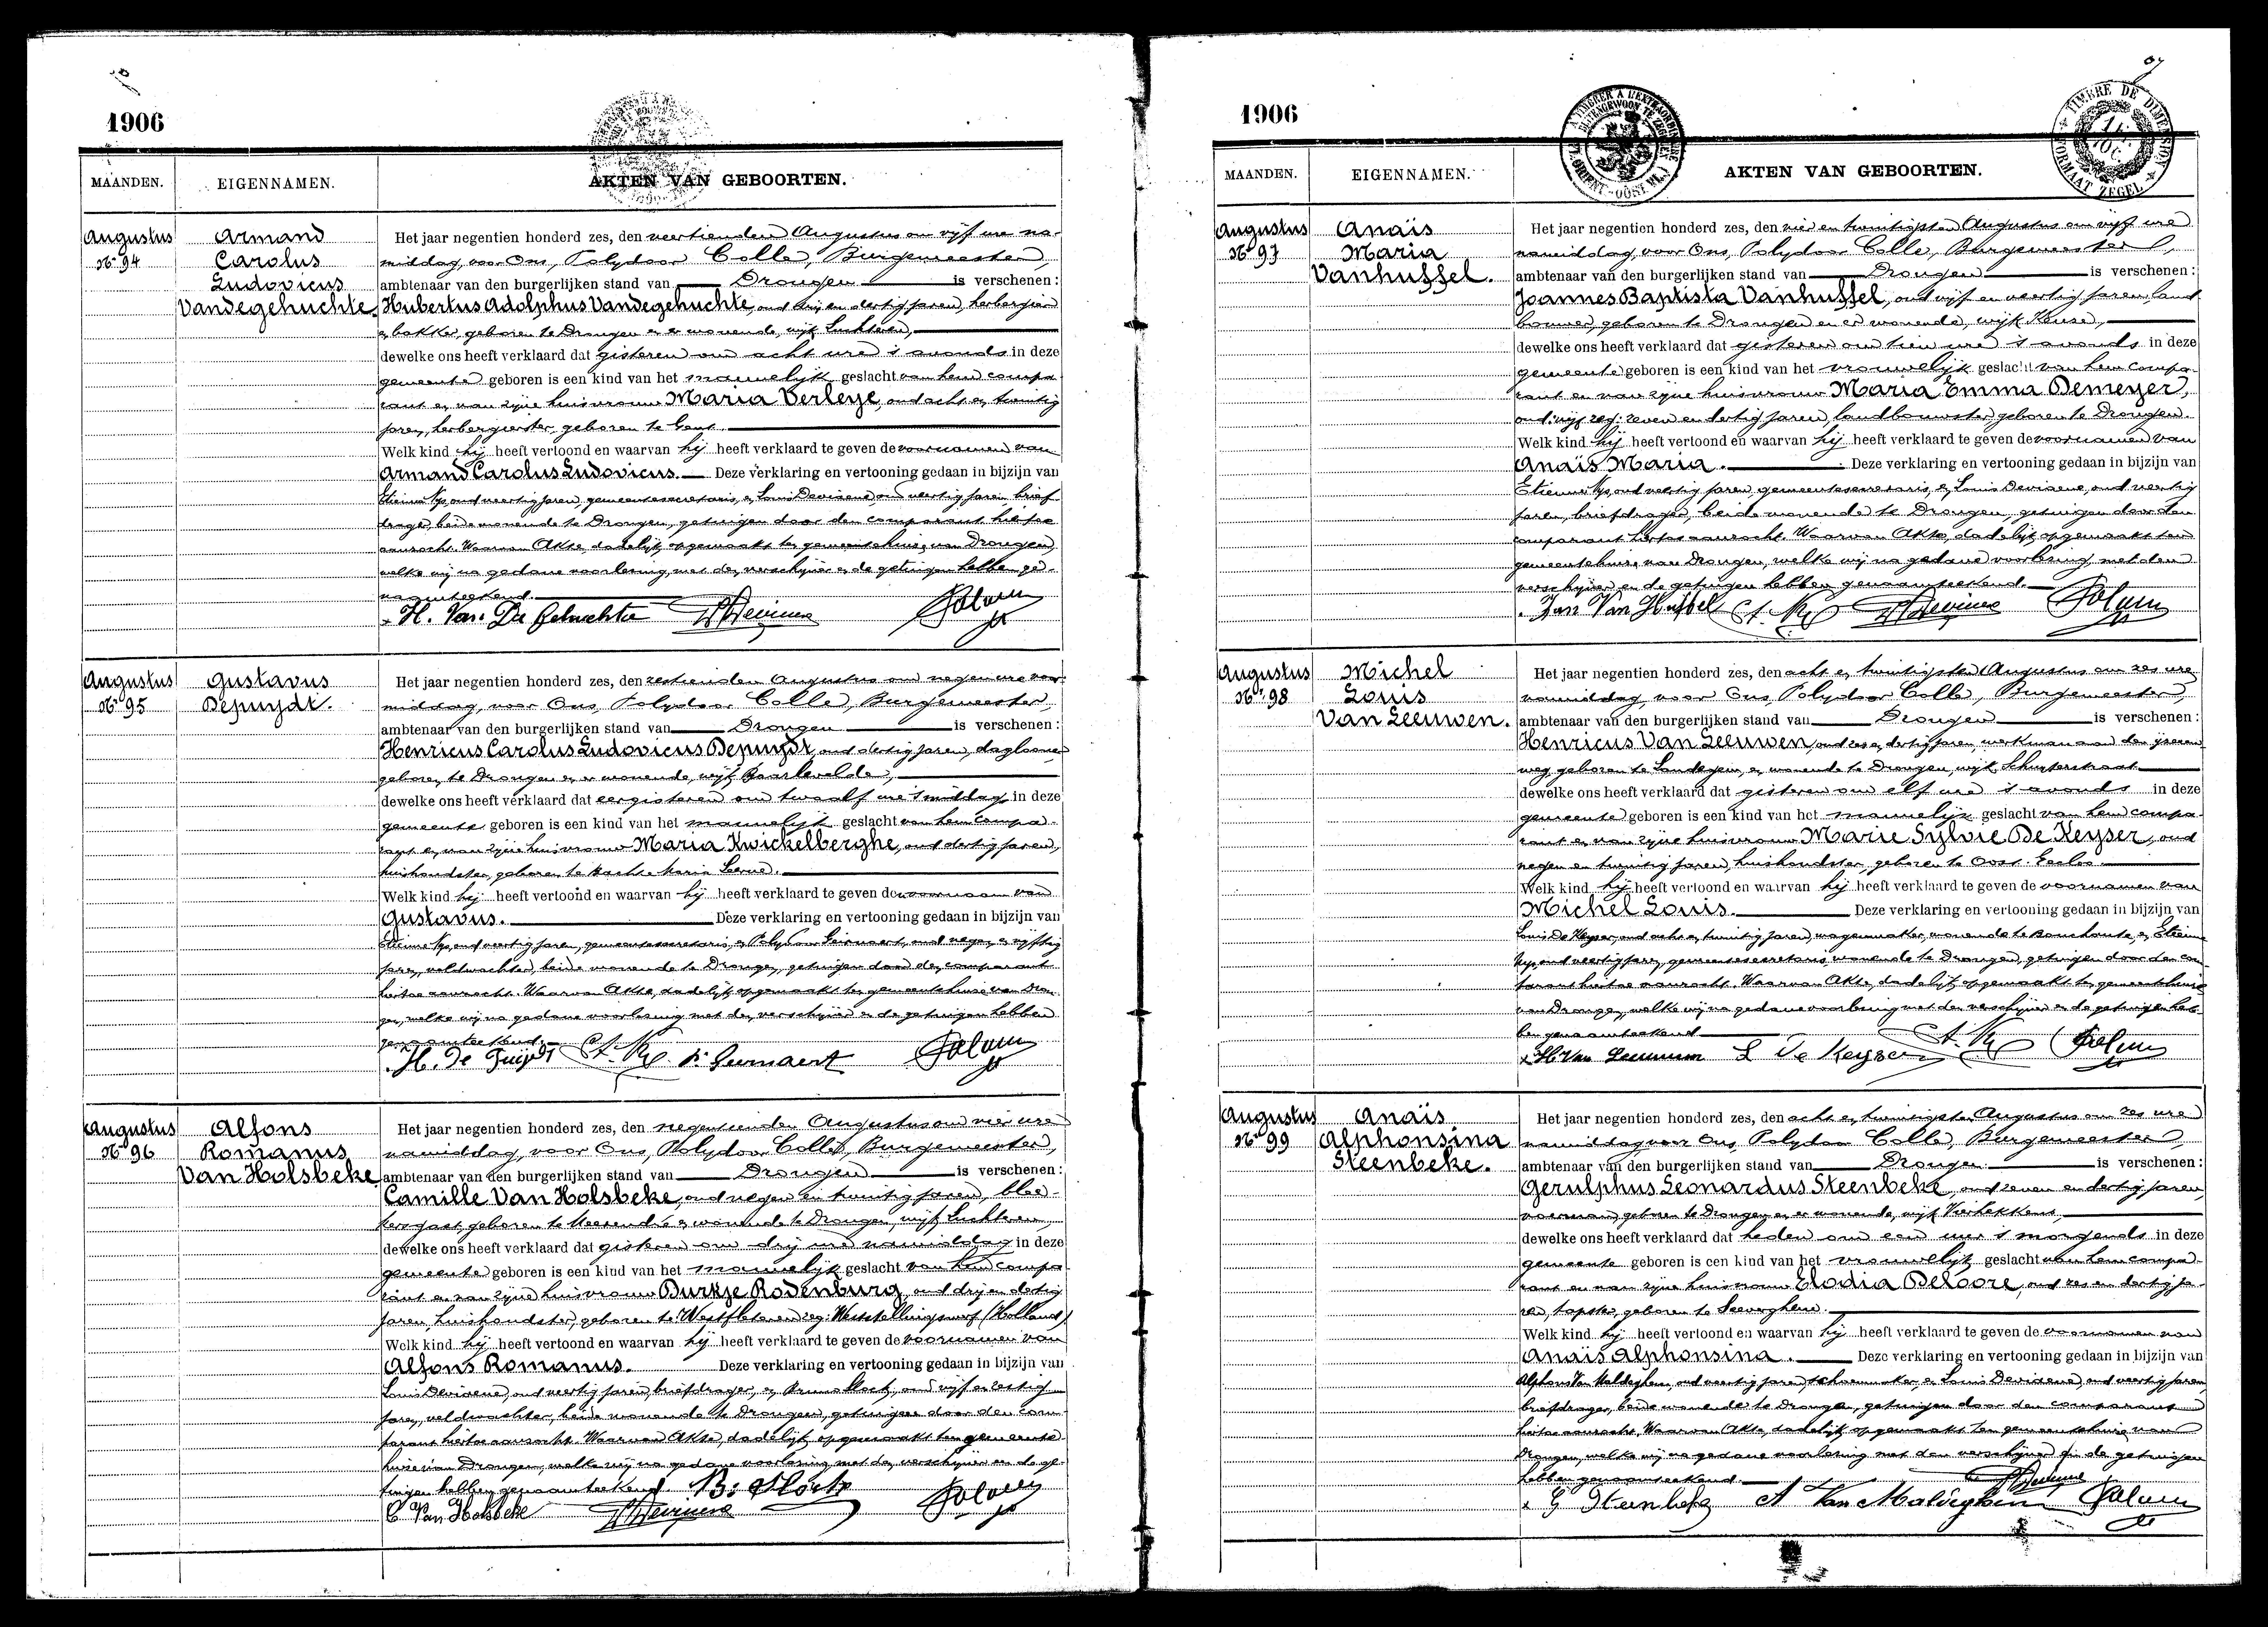 1906
MAANDEN.
EIGENNAMEN.
AKTEN VAN GEBOORTEN.
Augustus
No 94
Armand
Carolus
Ludovicus
Vandegehuchte.
Het jaar negentien honderd zes, den veertienden Augustus om vijf ure na-
middag, voor Ons, Polydoor Colle, Burgemeester,
ambtenaar van den burgerlijken stand van Drongen is verschenen:
Hubertus Adolphus Vandegehuchte, oud drij en dertig jaren, herbergier
en bakker, geboren te Drongen en er wonende, wijk Luchteren,
dewelke ons heeft verklaard dat gisteren om acht ure 's avonds in deze
gemeente geboren is een kind van het mannelijk geslacht van hem compa-
rant en van zijne huisvrouw Maria Verleye, oud acht en twintig
jaren, herbergierster, geboren te Gent.
Welk kind hij heeft vertoond en waarvan hij heeft verklaard te geven de voornamen van
Armand Carolus Ludovicus. Deze verklaring en vertooning gedaan in bijzijn van
Etienne Nys, oud veertig jaren, gemeentesecretaris, en Louis Devisene, oud veertig jaren, brief-
drager, beide wonende te Drongen, getuigen door den comparant hiertoe
aanzocht. Waarvan Akte, dadelijk opgemaakt ten gemeentehuize van Drongen,
welke wij na gedane voorlezing, met den verschijner en de getuigen hebben ge-
naamteekend.
H. Van De Gehuchte
Augustus
No 95
Gustavus
Depuydt.
Het jaar negentien honderd zes, den zestienden Augustus om negen ure voor-
middag, voor Ons, Polydoor Colle, Burgemeester,
ambtenaar van den burgerlijken stand van Drongen is verschenen:
Henricus Carolus Ludovicus Depuydt, oud dertig jaren, daglooner
geboren te Drongen en er wonende, wijk Baarlevelde,
dewelke ons heeft verklaard dat eergisteren om twaalf ure 's middag in deze
gemeente geboren is een kind van het mannelijk geslacht van hem compa-
rant en van zijne huisvrouw Maria Kwickelberghe, oud dertig jaren,
huishoudster, geboren te Sancta Maria Leerne.
Welk kind hij heeft vertoond en waarvan hij heeft verklaard te geven den voornaam van
Gustavus. Deze verklaring en vertooning gedaan in bijzijn van
Etienne Nys, oud veertig jaren, gemeentesecretaris, en Polydoor oud negen en vijftig
jaren, veldwachter, beide wonende te Drongen, getuigen door den comparant
hiertoe aanzocht. Waarvan Akte, dadelijk opgemaakt ten gemeentehuize van Dron-
gen, welke wij na gedane voorlezing met den verschijner en de getuigen hebben
genaamteekend.
H. De Puydt
Augustus
No 96
Alfons
Romanus
Van Holsbeke
Het jaar negentien honderd zes, den negentienden Augustus om vier ure
namiddag, voor Ons, Polydoor Colle, Burgemeester,
ambtenaar van den burgerlijken stand van Drongen is verschenen:
Camille Van Holsbeke, oud negen en twintig jaren, blee-
kersgast, geboren te Meerendré en wonende te Drongen, wijk Luchteren,
dewelke ons heeft verklaard dat gisteren om drij ure namiddag in deze
gemeente geboren is een kind van het mannelijk geslacht van hem compa-
rant en van zijne huisvrouw Durkje Rodenburg, oud drij en dertig
jaren, huishoudster, geboren te zeg: Weststellingwerf (Holland)
Welk kind hij heeft vertoond en waarvan hij heeft verklaard te geven de voornamen van
Alfons Romanus. Deze verklaring en vertooning gedaan in bijzijn van
Louis Devisene, oud veertig jaren, briefdrager, en Bruno oud vijf en zestig
jaren, veldwachter, beide wonende te Drongen, getuigen door den com-
parant hiertoe aanzocht. Waarvan Akte, dadelijk opgemaakt ten gemeente-
huize van Drongen, welke wij na gedane voorlezing met den verschijner en de ge-
tuigen hebben genaamteekend.
C Van Holsbeke
1906
MAANDEN.
EIGENNAMEN.
AKTEN VAN GEBOORTEN.
TIMBRE DE DIMENSION
FORMAAT ZEGEL
Augustus
No 97
Anaïs
Maria
Vanhuffel.
Het jaar negentien honderd zes, den vier en twintigsten Augustus om vijf ure
namiddag, voor Ons, Polydoor Colle, Burgemeester,
ambtenaar van den burgerlijken stand van Drongen is verschenen:
Joannes Baptista Vanhuffel, oud vijf en veertig jaren, land-
bouwer, geboren te Drongen en er wonende, wijk Keuze,
dewelke ons heeft verklaard dat gisteren om tien ure 's avonds in deze
gemeente geboren is een kind van het vrouwelijk geslacht van hem compa-
rant en van zijne huisvrouw Maria Emma Demeyer,
oud vijf zeg: zeven en dertig jaren, landbouwster, geboren te Drongen.
Welk kind hij heeft vertoond en waarvan hij heeft verklaard te geven de voornamen van
Anaïs Maria. Deze verklaring en vertooning gedaan in bijzijn van
Etienne Nys, oud veertig jaren, gemeentesecretaris, en Louis Devisene, oud veertig
jaren, briefdrager, beide wonende te Drongen, getuigen door den
comparant hiertoe aanzocht. Waarvan Akte, dadelijk opgemaakt ten
gemeentehuize van Drongen, welke wij na gedane voorlezing, met den
verschijner en de getuigen hebben genaamteekend.
Jan Van Huffel
Augustus
No 98
Michel
Louis
Van Leeuwen.
Het jaar negentien honderd zes, den acht en twintigsten Augustus om zes ure
namiddag, voor Ons, Polydoor Colle, Burgemeester,
ambtenaar van den burgerlijken stand van Drongen is verschenen:
Henricus Van Leeuwen, oud zes en dertig jaren, werkman aan den ijzeren
weg, geboren te Landegem, en wonende te Drongen, wijk
dewelke ons heeft verklaard dat gisteren om elf ure 's avonds in deze
gemeente geboren is een kind van het mannelijk geslacht van hem compa-
rant en van zijne huisvrouw Marie Sylvie De Keyser, oud
negen en twintig jaren, huishoudster, geboren te Oost-Eecloo.
Welk kind hij heeft vertoond en waarvan hij heeft verklaard te geven de voornamen van
Michel Louis. Deze verklaring en vertooning gedaan in bijzijn van
Louis De Keyser, oud acht en twintig jaren, wagenmaker, wonende te Bouchoute, en Etienne
Nys, oud veertig jaren, gemeentesecretaris, wonende te Drongen, getuigen door den com-
parant hiertoe aanzocht. Waarvan Akte, dadelijk opgemaakt ten gemeentehuize
van Drongen, welke wij na gedane voorlezing met den verschijner en de getuigen heb-
ben genaamteekend
H Van Leeuwen L De Keyser
Augustus
No 99
Anaïs
Alphonsina
Steenbeke.
Het jaar negentien honderd zes, den acht en twintigsten Augustus om zes ure
namiddag voor Ons, Polydoor Colle, Burgemeester
ambtenaar van den burgerlijken stand van Drongen is verschenen:
Gerulphus Leonardus Steenbeke, oud zeven en dertig jaren,
voerman, geboren te Drongen en er wonende, wijk Vierhekkens,
dewelke ons heeft verklaard dat heden om een uur 's morgends in deze
gemeente geboren is een kind van het vrouwelijk geslacht van hem compa-
rant en van zijne huisvrouw Elodia Deloore, oud zes en dertig ja-
ren, geboren te Seeverghem.
Welk kind hij heeft vertoond en waarvan hij heeft verklaard te geven de voornamen van
Anaïs Alphonsina. Deze verklaring en vertooning gedaan in bijzijn van
Alphons Van Maldeghem, oud veertig jaren, schoenmaker, en Louis Devisene, oud veertig jaren,
briefdrager, beide wonende te Drongen, getuigen door den comparant
hiertoe aanzocht. Waarvan Akte, dadelijk opgemaakt ten gemeentehuize van
Drongen, welke wij na gedane voorlezing met den verschijner en de getuigen
hebben genaamteekend.
G Steenbeke A Van Maldeghem